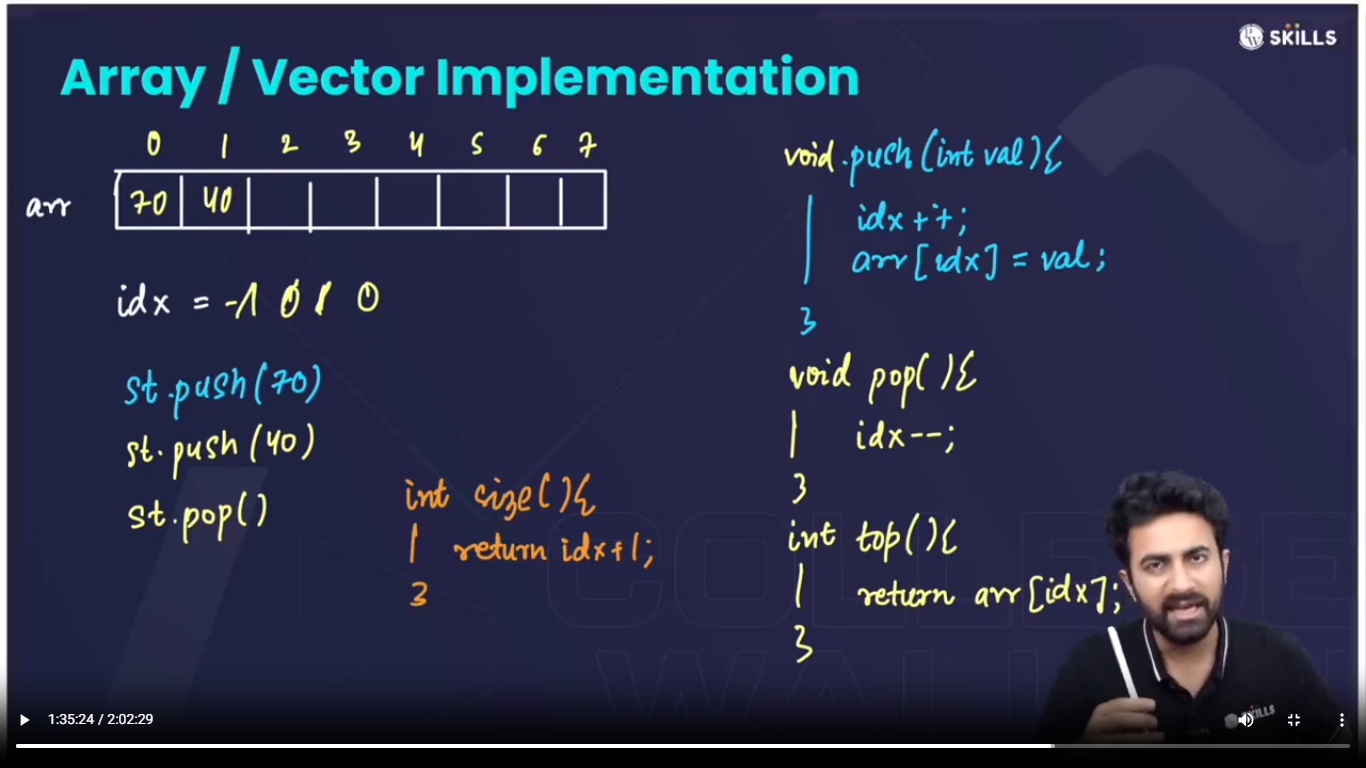 SKILLS
Array / Vector Implementation
0 1 2 3 4 5 6 7
arr 70 40
idx = -1 0 1 0
st.push(70)
st.push(40)
st.pop()
int size(){
return idx+1;
}
void push(int val){
idx++;
arr[idx] = val;
}
void pop(){
idx--;
}
int top(){
return arr[idx];
}
COLLEGE
WALL
SKILLS
1:35:24 / 2:02:29